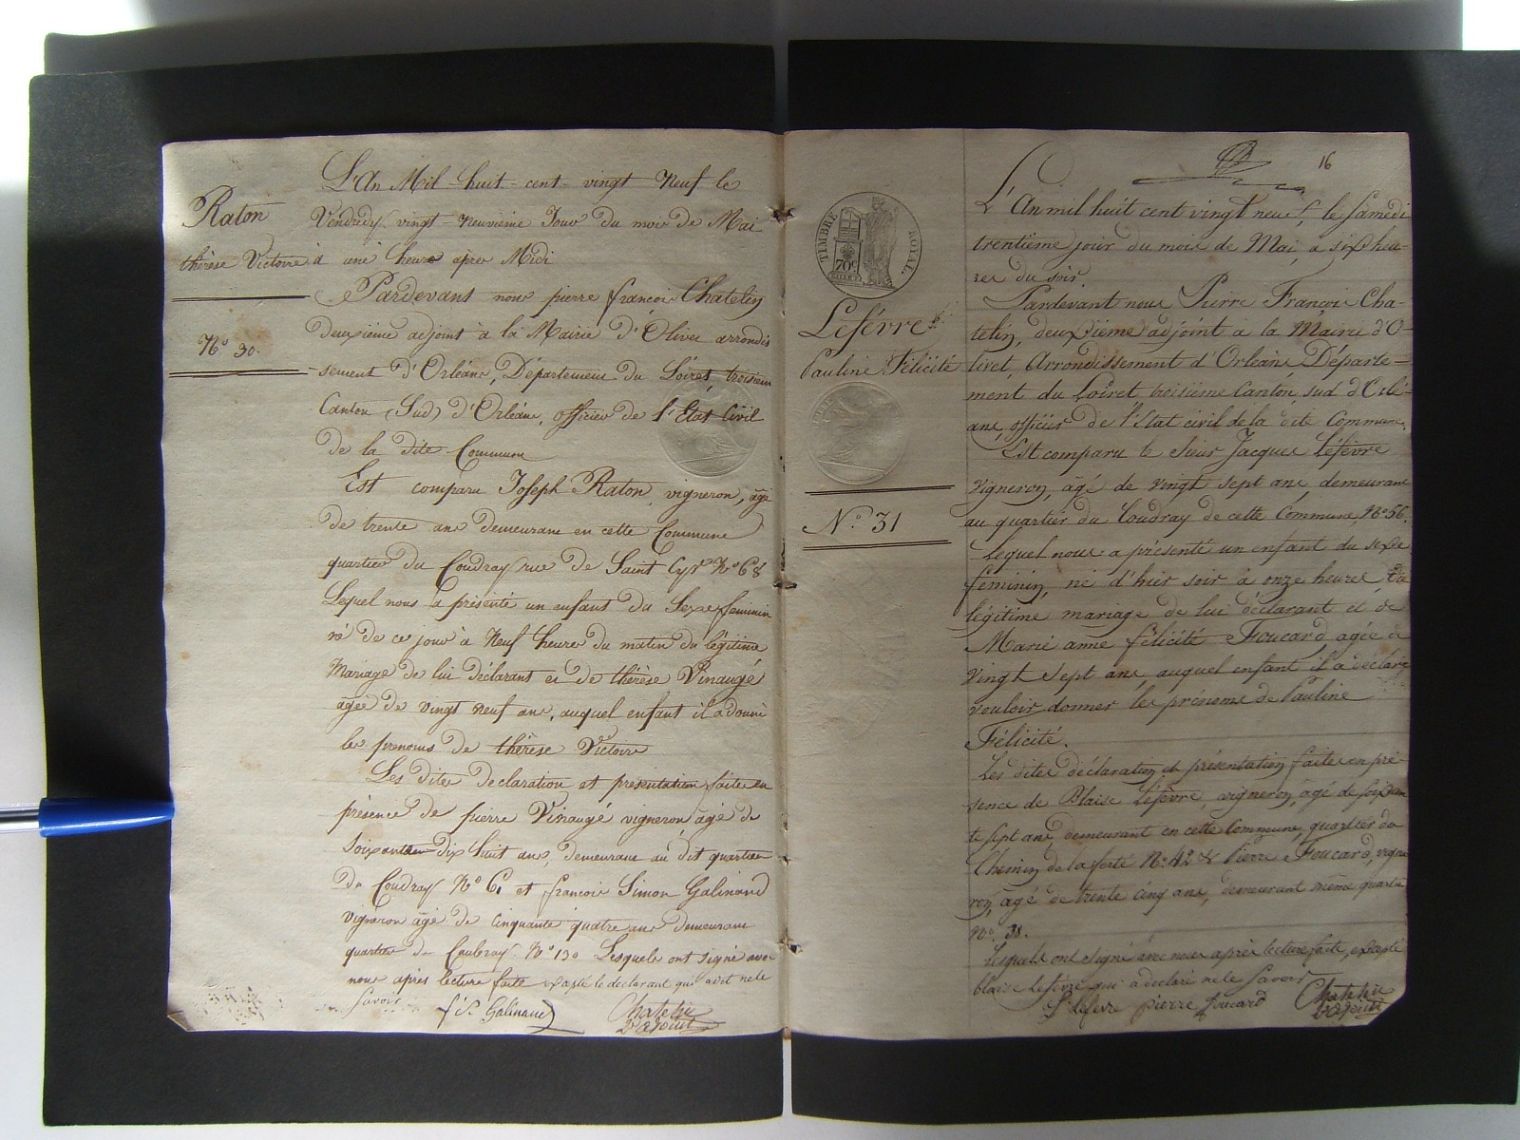 Raton
thérèse Victoire
N° 30.
L'An Mil huit cent vingt Neuf le
Vendredy vingt Neuvieme Jour du mois de Mai
à une heure après Midi
Pardevant nous pierre françois Chatelin
deuxième adjoint à la Mairie d'Olivet arrondis
sement d'Orléans, Département du Loiret, troisieme
Canton (Sud) d'Orléans, officier de l'Etat Civil
de la dite Commune
Est comparu Joseph Raton, vigneron, âgé
de trente ans demeurant en cette Commune
quartier du Coudray rue de Saint Cyr N° 68
Lequel nous a présenté un enfant du Sexe feminin
né de ce jour à Neuf heures du matin du légitime
Mariage de lui déclarant et de thérèse Vinaugé
agée de vingt neuf ans, auquel enfant il a donné
les prenoms de thérèse Victoire
Les dites declaration et presentation faites en
présence de pierre Vinaugé vigneron âgé de
soixante dix huit ans, demeurant au dit quartier
du Coudray N° 6, et françois Simon Galinand
vigneron agé de cinquante quatre ans demeurant
quartier du Coudray N° 130 Lesquels ont signé avec
nous après lecture faite excepté le declarant qui a dit ne le
savoir
f s. Galinand
Chatelin
2e adjoint
16
TIMBRE ROYAL
70c
Lefévre
Pauline Félicité
N° 31
L'An mil huit cent vingt neuf, le samedi
trentieme jour du mois de Mai, à six heu-
res du soir.
Pardevant nous Pierre François Cha-
telin, deuxieme adjoint à la Mairie d'O-
livet, Arrondissement d'Orléans Départe-
ment du Loiret troisieme Canton, sud d'Orlé-
ans, officier de l'Etat civil de la dite Commune,
Est comparu le Sieur Jacques Lefévre
vigneron, agé de vingt sept ans, demeurant
au quartier du Coudray de cette Commune, N° 56.
Lequel nous a présenté un enfant du sexe
féminin, né d'hier soir à onze heures, du
légitime mariage de lui déclarant et de
Marie anne félicité Foucard, agée de
vingt sept ans, auquel enfant il a déclaré
vouloir donner les prénoms de Pauline
Félicité.
Les dites déclaration et présentation faites en pré-
sence de Blaise Lefévre, vigneron, agé de soixan
te sept ans, demeurant en cette Commune, quartier du
Chemin de la ferté N° 42 & Pierre Foucard, vigne
ron, âgé de trente cinq ans, demeurant même quartier
N° 38.
Lesquels ont signé avec nous après lecture faite, excepté
blaise Lefévre qui a déclaré ne le savoir
J lefevre pierre foucard
Chatelin
2e adjoint